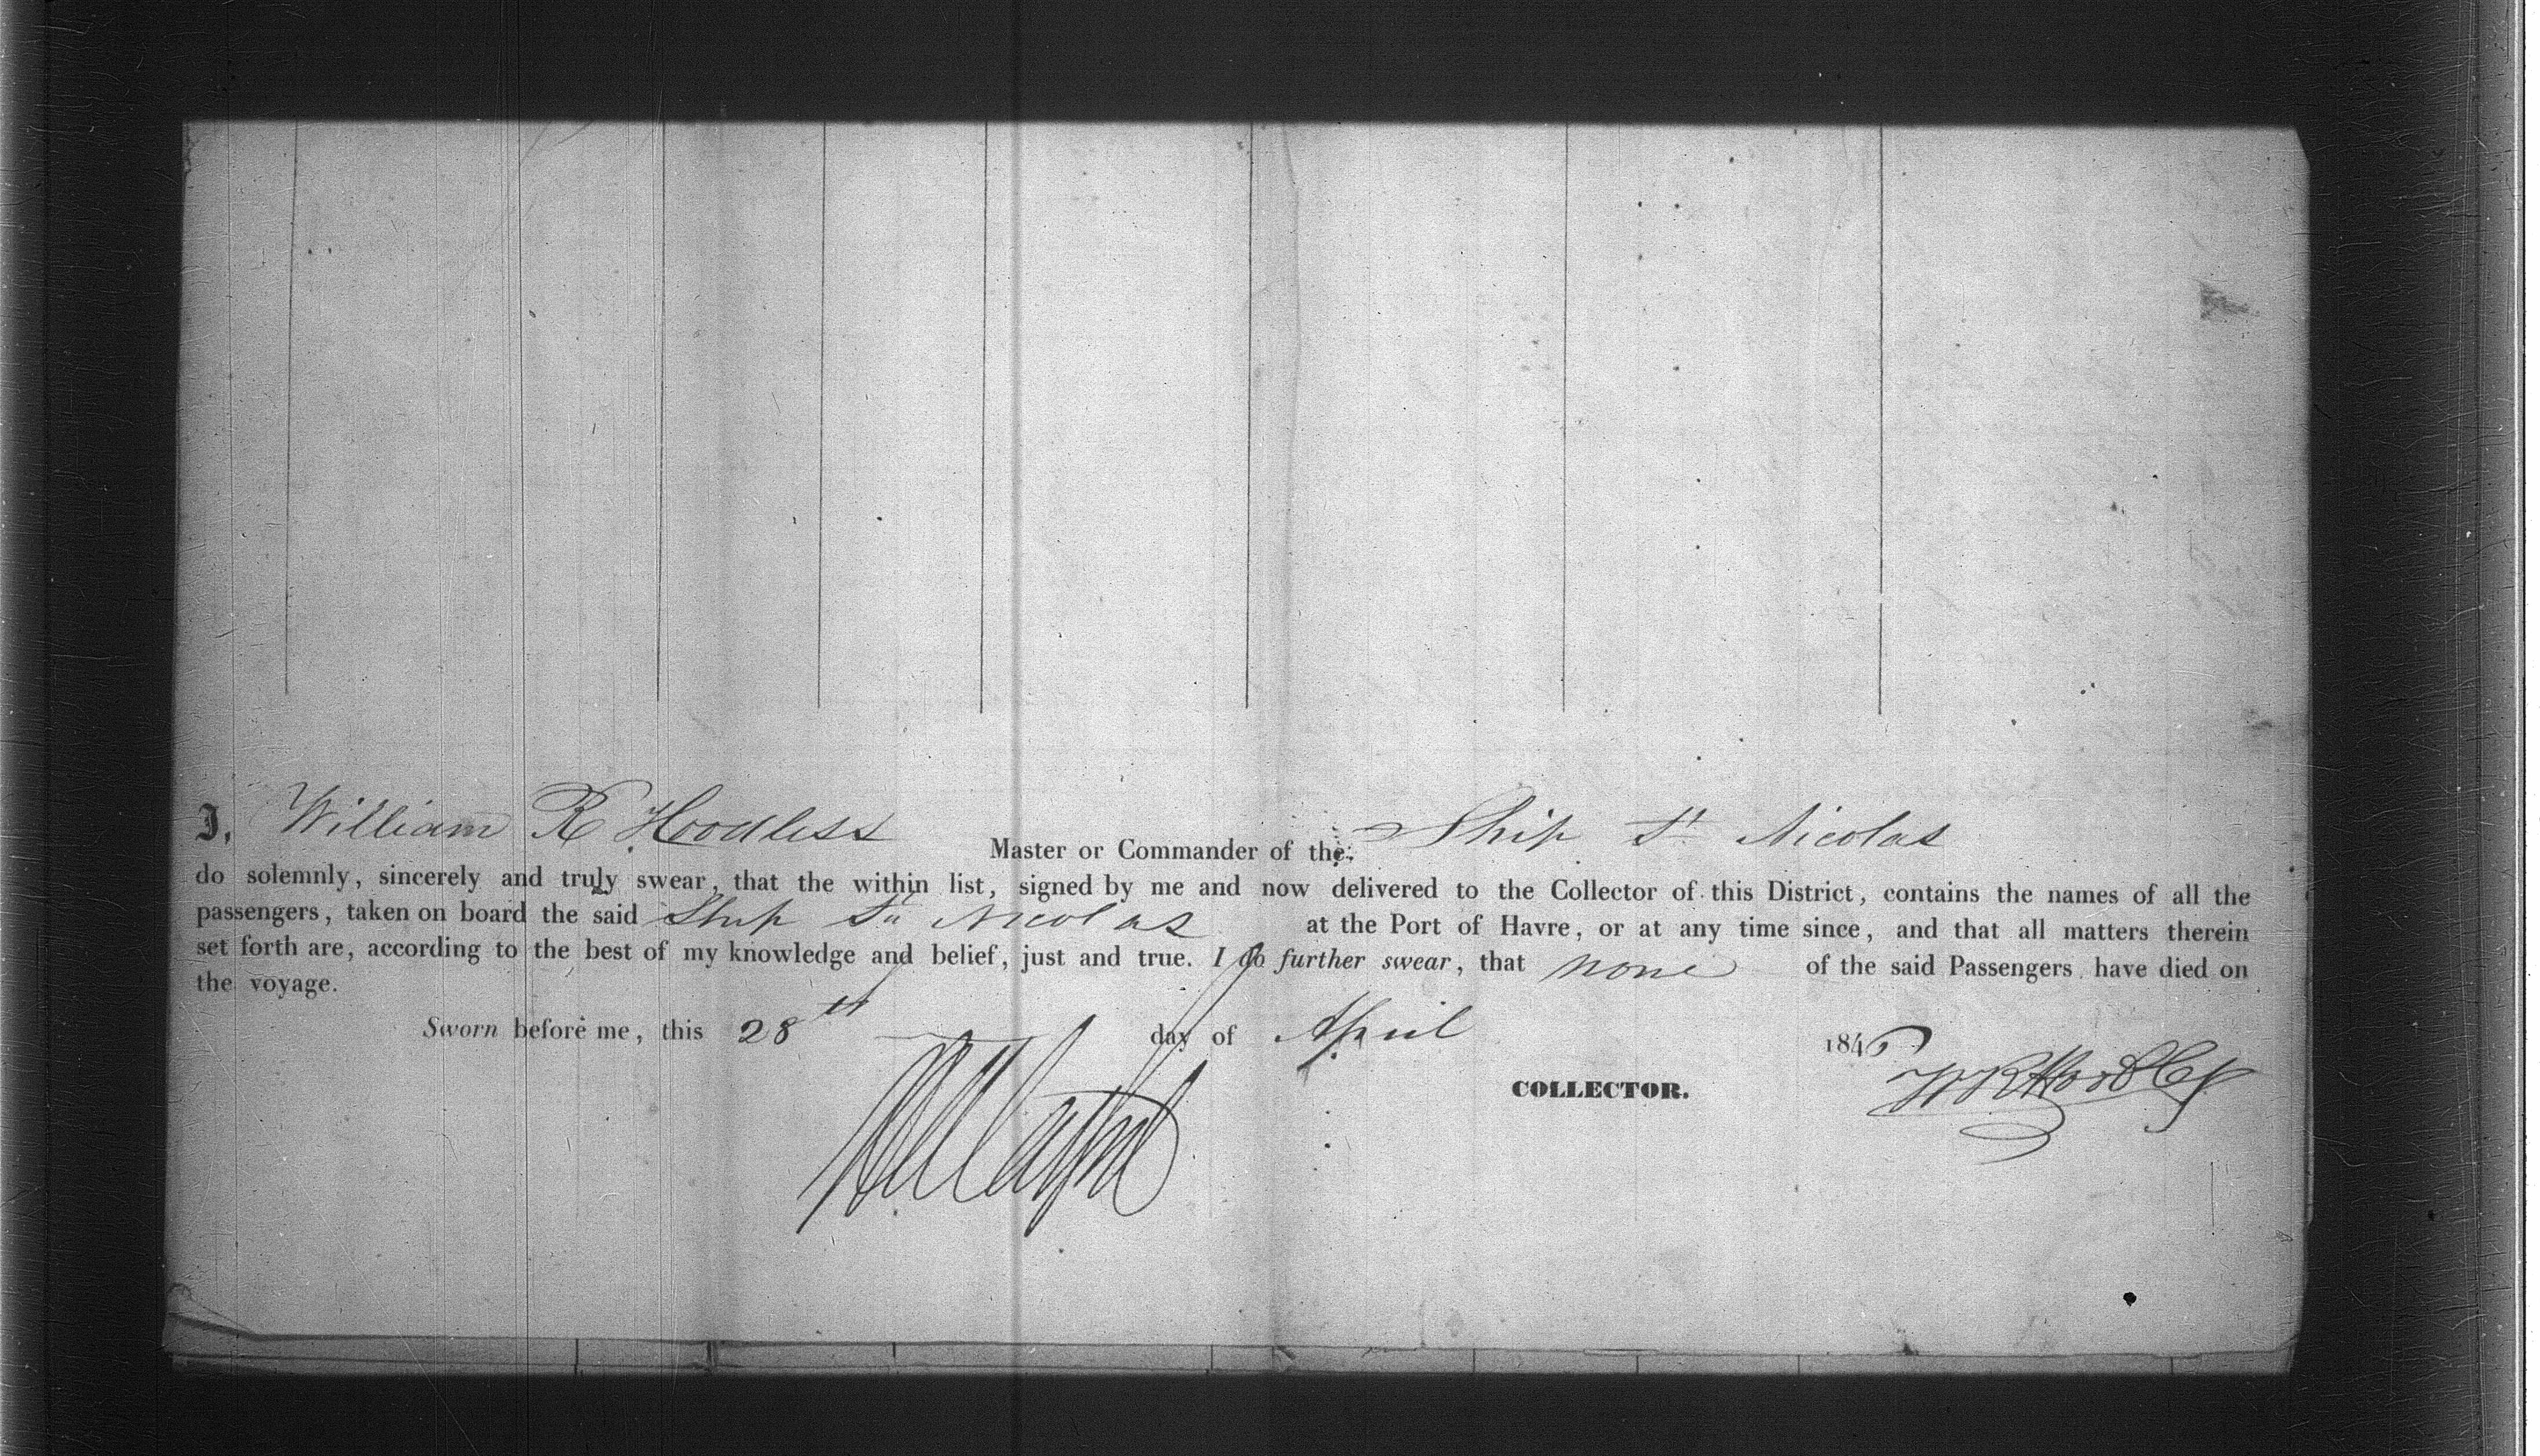 I, William R Hoodless Master or Commander of the Ship St Nicolas
do solemnly, sincerely and truly swear, that the within list, signed by me and now delivered to the Collector of this District, contains the names of all the
passengers, taken on board the said Ship St Nicolas at the Port of Havre, or at any time since, and that all matters therein
set forth are, according to the best of my knowledge and belief, just and true. I do further swear, that none of the said Passengers have died on
the voyage.
Sworn before me, this 28th day of April 1846
COLLECTOR.